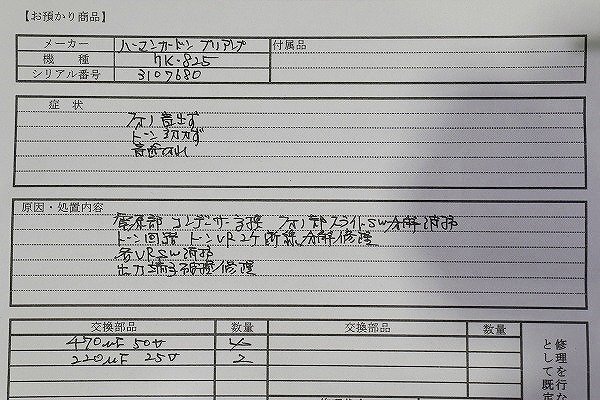 【お預かり商品】
メーカー ハーマンカードン プリアンプ 付属品
機 種 HK-825
シリアル番号 3107680
症 状
フォノ音出ず
トーン効かず
音途切れ
原因・処置内容
電源部 コンデンサー交換 フォノ部スライドSW分解清掃
トーン回路 トーンVR2ケ断線分解修理
各VR SW清掃
出力端子 修理
交換部品 数量 交換部品 数量
470μF 50V 4
220μF 25V 2
修理を行な
として既定